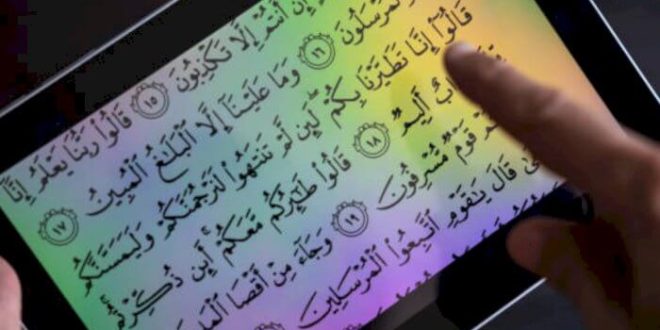 إِنْ أَنتُمْ إِلَّا تَكْذِبُونَ ١٥ قَالُوا۟ رَبُّنَا يَعْلَمُ إِنَّآ
لَمُرْسَلُونَ ١٦ وَمَا عَلَيْنَآ إِلَّا ٱلْبَلَٰغُ ٱلْمُبِينُ ١٧
قَالُوٓا۟ إِنَّا تَطَيَّرْنَا بِكُمْ لَئِن لَّمْ تَنتَهُوا۟ لَنَرْجُمَنَّكُمْ وَلَيَمَسَّنَّكُم
أَلِيمٌ ١٨ قَالُوا۟ طَٰٓئِرُكُم مَّعَكُمْ أَئِن ذُكِّرْتُم
قَوْمٌ مُّسْرِفُونَ ١٩ وَجَآءَ مِنْ أَقْصَا
قَالَ يَٰقَوْمِ ٱتَّبِعُوا۟ ٱلْمُرْسَلِينَ